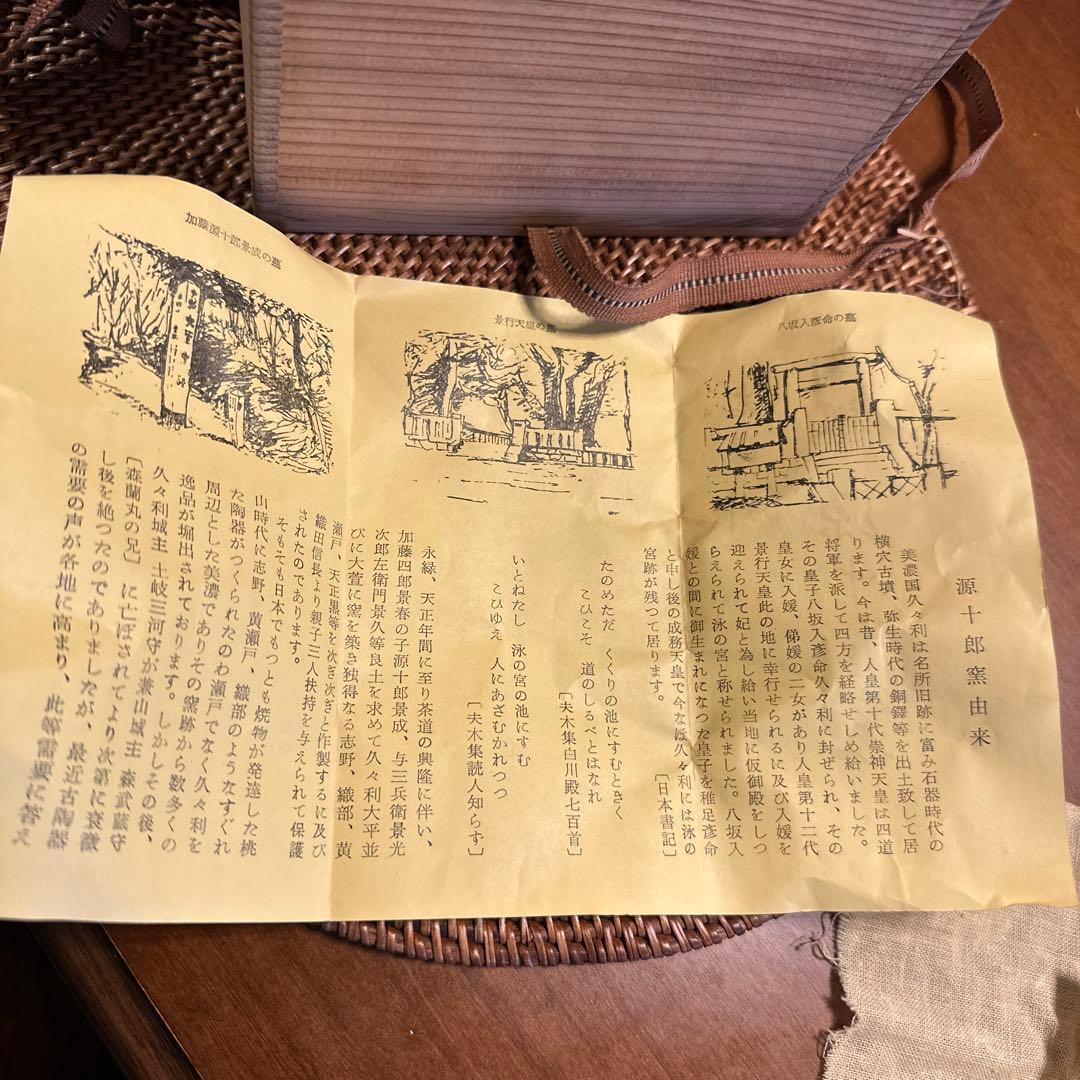 源十郎窯由来
美濃国久々利は名所旧跡に富み石器時代の
横穴古墳、弥生時代の銅鐸等を出土致して居
ります。今は昔、人皇第十代崇神天皇は四道
将軍を派して四方を経略せしめ給いました。
その皇子八坂入彦命久々利に封ぜられ、その
皇女に入媛、俤媛の二女があり人皇第十二代
景行天皇此の地に幸行せられるに及び入媛を
迎えられて妃と為し給い当地に仮御殿をしつ
らえられて泳の宮と称せられました。八坂入
媛との間に御生まれになつた皇子を稚足彦命
と申し後の成務天皇で今なほ久々利には泳の
宮跡が残つて居ります。
〔日本書記〕
たのめただ くくりの池にすむときく
こひこそ 道のしるべとはなれ
〔夫木集白川殿七百首〕
いとねたし 泳の宮の池にすむ
こひゆえ 人にあざむかれつつ
〔夫木集読人知らず〕
永緑、天正年間に至り茶道の興隆に伴い、
加藤四郎景春の子源十郎景成、与三兵衛景光
次郎左衛門景久等良土を求めて久々利大平並
びに大萱に窯を築き独得なる志野、織部、黄
瀬戸、天正黒等を次ぎ次ぎと作製するに及び
織田信長より親子三人扶持を与えられて保護
されたのであります。
そもそも日本でもつとも焼物が発達した桃
山時代に志野、黄瀬戸、織部のようなすぐれ
た陶器がつくられたのわ瀬戸でなく久々利を
周辺とした美濃でありその窯跡から数多くの
逸品が堀出されております。しかしその後、
久々利城主 土岐三河守が兼山城主 森武蔵守
〔森蘭丸の兄〕 に亡ぼされてより次第に衰微
し後を絶つたのでありましたが、最近古陶器
の需要の声が各地に高まり、此等需要に答え
八坂入彦命の墓
景行天皇の墓
加藤源十郎景成の墓